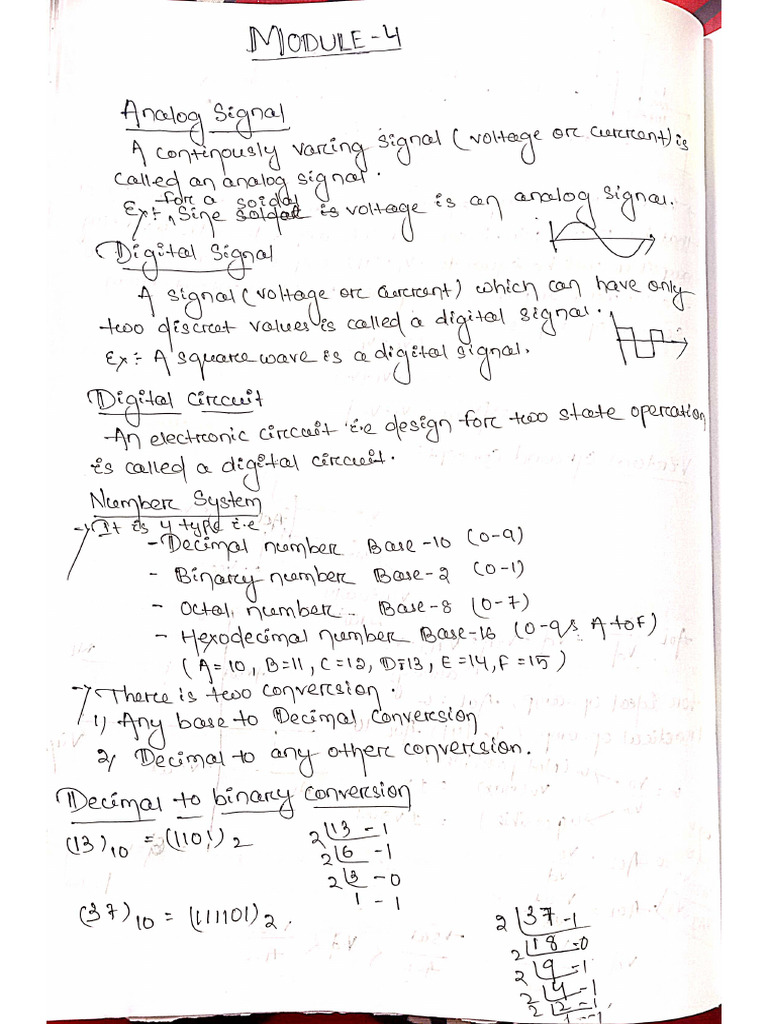 MODULE-4
Analog Signal
A continously varcing signal (voltage orc currrent) is
called an analog signal.
forc a soidal
Ex:- Sine is voltage is an analog signal.
Digital Signal
A signal (voltage orc currcent) which can have only
two discret values is called a digital signal.
Ex:- A square wave is a digital signal.
Digital circcuit
An electrconic circcuit i.e design forc two state opercation
is called a digital circcuit.
Numberc System
→ It is 4 type i.e
- Decimal numberc Base-10 (0-9)
- Binarcy numberc Base-2 (0-1)
- Octal numberc Base-8 (0-7)
- Hexodecimal numberc Base-16 (0-9 & A to F)
(A=10, B=11, C=12, D=13, E=14, F=15)
→ Therce is two convercsion.
1) Any base to Decimal convercsion
2) Decimal to any otherc convercsion.
Decimal to binarcy convercsion
(13)10 = (1101)2
2 13 - 1
2 6 - 1
2 3 - 0
1 - 1
(37)10 = (111101)2.
2 37 - 1
2 18 = 0
2 9 = 1
2 4 - 1
2 2 - 1
1 - 1